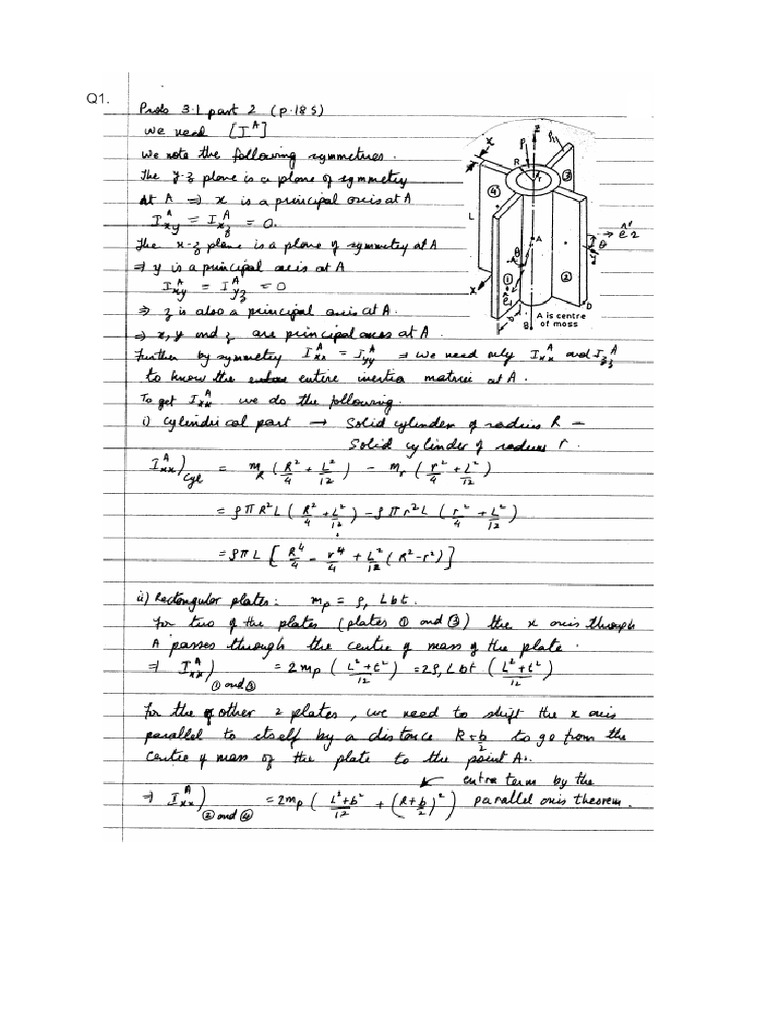 Q1.
Prob 3.1 part 2 (p.185)
We need [I^A]
We note the following symmetries.
The y-z plane is a plane of symmetry
at A ⇒ x is a principal axis at A
I^A_xy = I^A_xz = 0.
The x-z plane is a plane of symmetry at A
⇒ y is a principal axis at A
I^A_xy = I^A_yz = 0
⇒ z is also a principal axis at A.
⇒ x, y and z are principal axes at A.
Further by symmetry I^A_xx = I^A_yy ⇒ we need only I^A_xx and I^A_zz
to know the entire inertia matrix at A.
To get I^A_xx we do the following.
i) Cylindrical part → Solid cylinder of radius R −
Solid cylinder of radius r.
I^A_xx)_Cyl = m_R (R²/4 + L²/12) − m_r (r²/4 + L²/12)
= ρπR²L (R²/4 + L²/12) − ρπr²L (r²/4 + L²/12)
= ρπL [R⁴/4 − r⁴/4 + L²/12 (R² − r²)]
ii) Rectangular plates: m_p = ρ₁ Lbt.
For two of the plates (plates ① and ③) the x axis through
A passes through the centre of mass of the plate.
⇒ I^A_xx)_① and ③ = 2m_p (L²+t²/12) = 2ρ₁Lbt (L²+t²/12)
For the other 2 plates, we need to shift the x axis
parallel to itself by a distance R+b/2 to go from the
centre of mass of the plate to the point A.
extra term by the
⇒ I^A_xx)_② and ④ = 2m_p (L²+b²/12 + (R+b/2)²) parallel axis theorem.
z
t
R
r
④
③
L
A
e2
θ
①
②
x
e1
b
B
D
A is centre
of mass